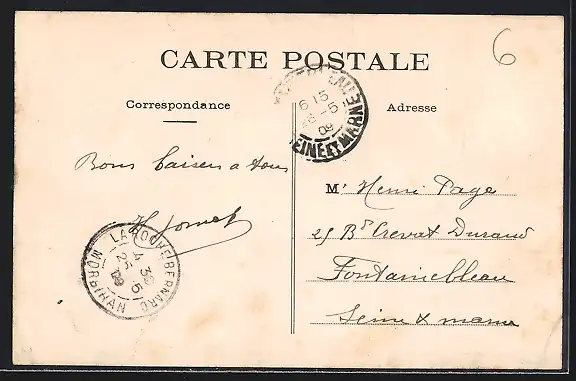 CARTE POSTALE
6
Correspondance
Adresse
Bons baisers a tous
LA ROCHE-BERNARD
4 30
25 -5
09
MORBIHAN
6 15
26 -5
09
SEINE ET MARNE
Mr Henri Page
25 Bd Crevat Durand
Fontainebleau
Seine & marne